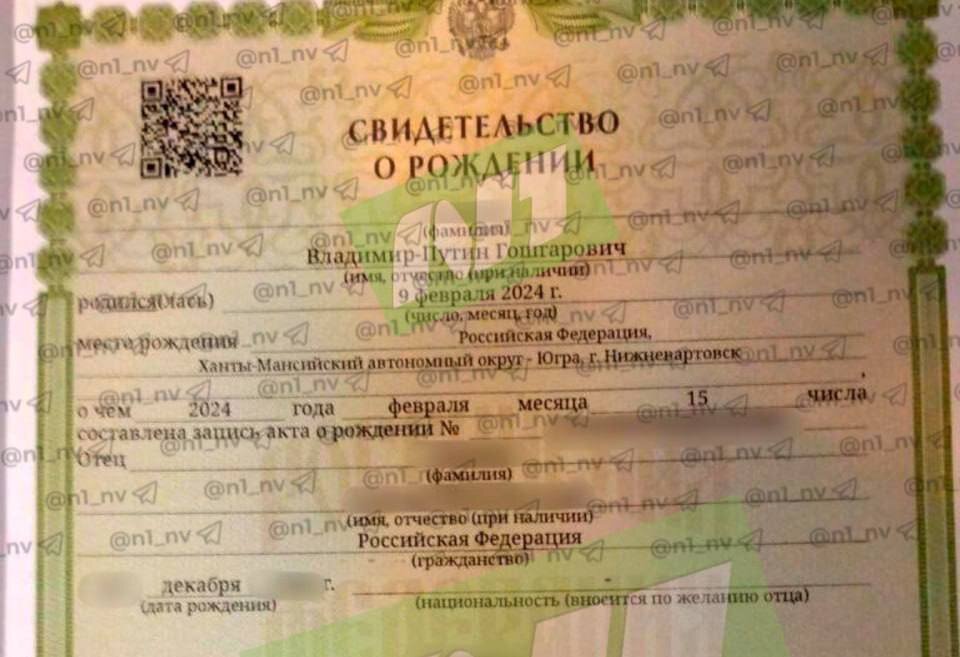 СВИДЕТЕЛЬСТВО
О РОЖДЕНИИ
(фамилия)
Владимир-Путин Гошгарович
(имя, отчество (при наличии)
родился(лась) 9 февраля 2024 г.
(число, месяц, год)
место рождения Российская Федерация,
Ханты-Мансийский автономный округ - Югра, г. Нижневартовск
,
о чем 2024 года февраля месяца 15 числа
составлена запись акта о рождении №
Отец
(фамилия)
(имя, отчество (при наличии)
Российская Федерация
(гражданство)
декабря г. -
(дата рождения) (национальность (вносится по желанию отца)
@n1_nv
N1